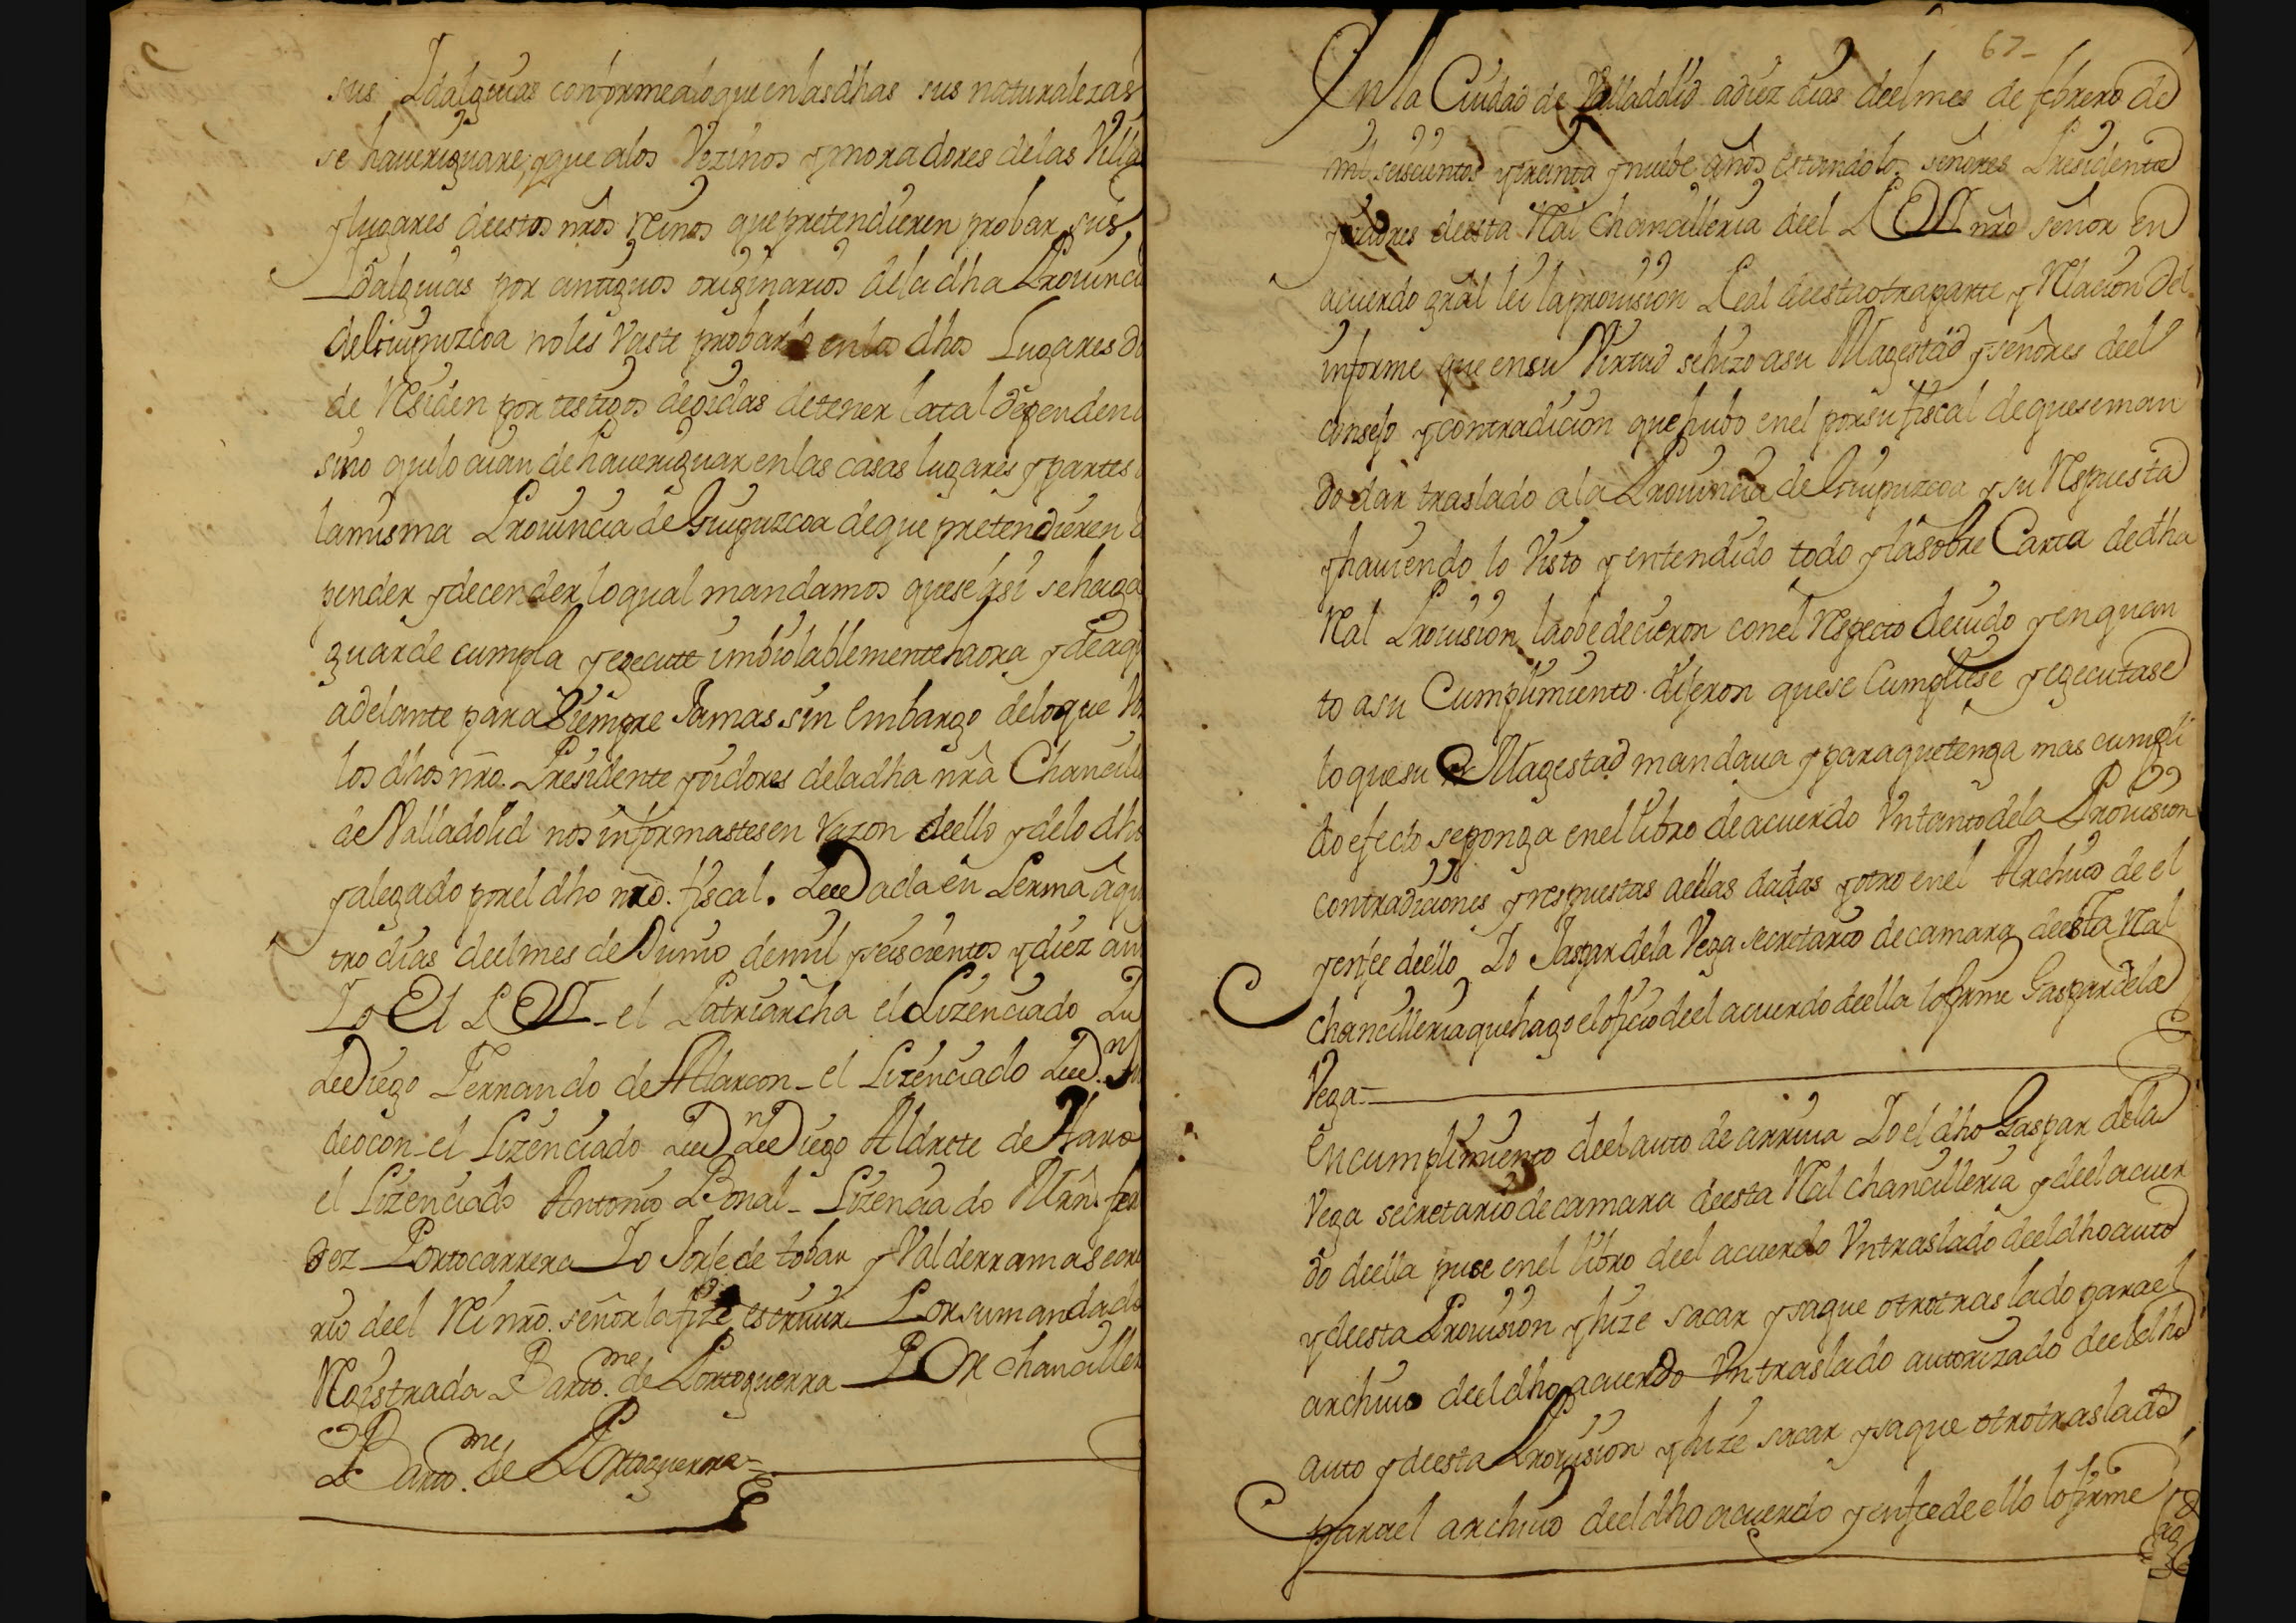 sus Idalguias conforme alo que en las dhas sus naturalezas
se haueriguare, y que alos Vezinos y moradores de las Villa
y lugares deestos nros Reinos que pretendieren probar sus
Idalguias por antiguos originarios dela dha Prouinci
de Guipuzcoa no les Vaste probarlo en los dhos Lugares do
de Residen por testigos de oidas de tener la tal dependenc
sino que lo aian de haueriguar en las casas lugares y partes
la misma Prouincia de Guipuzcoa de que pretendieren
pender y decender lo qual mandamos que se asi se haga
guarde cumpla y egecute imbiolablemente haora y de aqu
adelante para Siempre Jamas sin embargo de lo que Vos
los dhos nro. Presidente y oidores dela dha nrâ Chancill
de Valladolid nos informastes en razon deello y delo dho
y alegado por el dho nro. fiscal. Dada en Lerma a qu
tro dias deel mes de Junio de mil y seiscientos y diez añ
Io El REI - el Patriarcha el Lizenciado
Diego Fernando de Alarcon - el Lizenciado
deocon - el Lizenciado Dn Diego Aldrete de Haro
el Lizenciado Antonio Bonal - Lizenciado
dez Portocarrera Io Jorje de tobar y Valderrama secre
rio deel Rei nro. señor la fize escriuir Por su mandado
Rejistrada Bartome. de Portoguerra Por chanciller
Bartome. de Portoguerra =
67-
En la Ciudad de Valladolid a diez dias deel mes de febrero de
mil seiscientos y treinta y nuebe años estando los señores Presidente
y oidores deesta Ral Chancilleria deel REI nro señor en
acuerdo gral lei la prouision Real deesta otra parte y Relacion del
informe que en su Virtud se hizo a su Magestad y señores deel
consejo y contradicion que hubo en el por su fiscal de que se man
do dar traslado a la Prouincia de Guipuzcoa y su Respuesta
y hauiendo lo Visto y entendido todo y la sobre Carta de dha
Ral Prouision la obedecieron con el Respecto deuido y en quan
to a su Cumplimiento dijeron que se Cumpliese y egecutase
lo que su Magestad mandaua y para que tenga mas cumpli
do efecto se ponga en el libro de acuerdo Vn tanto de la Prouision
contradiciones y respuestas a ellas dadas y otro en el Archiuo de el
y en fee deello Io Gaspar dela Vega secretario de camara deesta Ral
chancilleria que hago el oficio deel acuerdo deella lo firme Gaspar dela
Vega =
En cumplimiento deel auto de arriua Io el dho Gaspar dela
Vega secretario de camara deesta Ral chancilleria y deel acuer
do deella puse en el libro deel acuerdo Vn traslado deel dho auto
y deesta Prouision y hize sacar y saque otro traslado para el
archiuo deel dho acuerdo Vn traslado autorizado deel dho
auto y deesta Prouision y hize sacar y saque otro traslado
para el archiuo deel dho acuerdo y en fee de ello lo firme